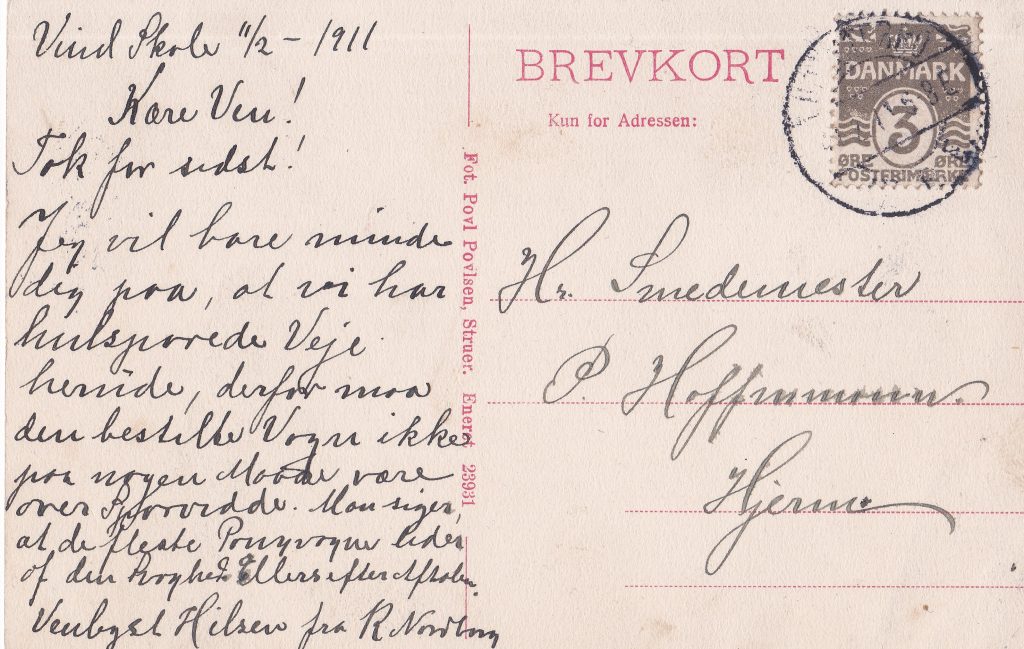 Vind Skole 11/2 – 1911
Kære Ven!
Tak for sidst!
Jeg vil bare minde
dig paa, at vi har
hulsporede Veje
herude, derfor maa
den bestilte Vogn ikke
paa nogen Maade være
over Sporvidde. Man siger,
at de fleste Ponyvogne lider
af den Ellers efter Aftalen.
Venligst Hilsen fra R Nordborg
BREVKORT
Kun for Adressen:
Fot. Povl Povlsen, Struer. Eneret 23931
DANMARK
3
ØRE ØRE
POSTFRIMÆRKE
Hr. Smedemester
P. Hoffmann.
Hjerm